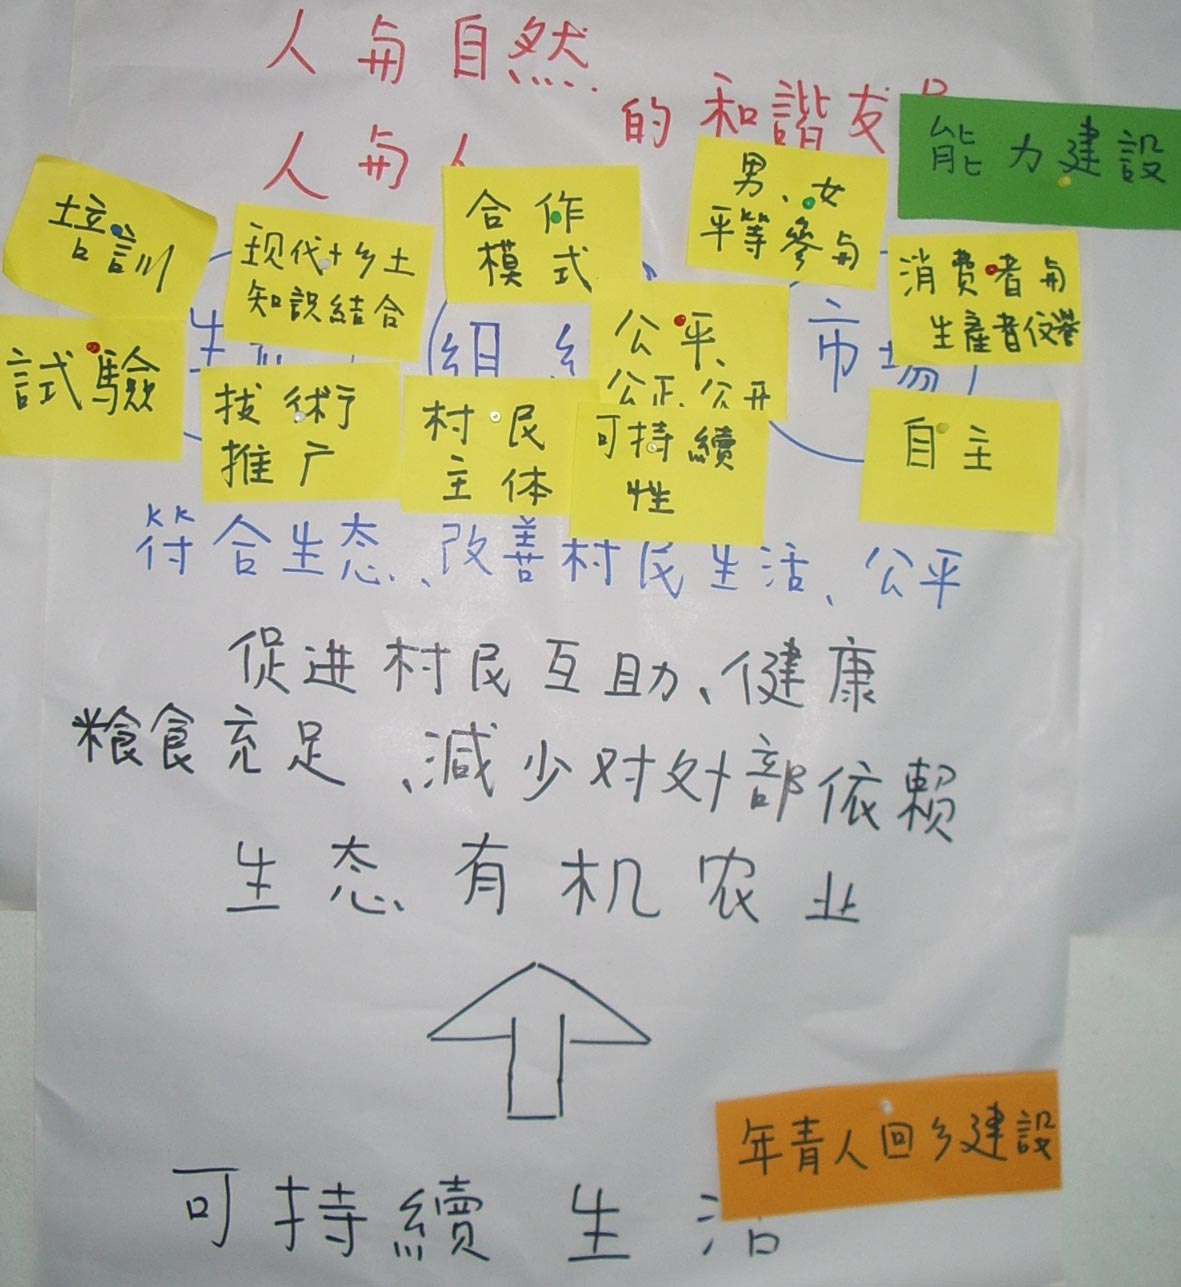 人与自然
的和諧友
人与人
能力建設
培訓
现代+乡土
知識結合
合作
模式
男、女
平等參与
消費者与
生產者
試驗
生
組
公平、
公正、公开
市場
技術
推广
村民
主体
可持續
性
自主
符合生态、改善村民生活、公平
促进村民互助、健康
粮食充足、減少对外部依賴
生态有机农业
年青人回乡建設
可持續生活